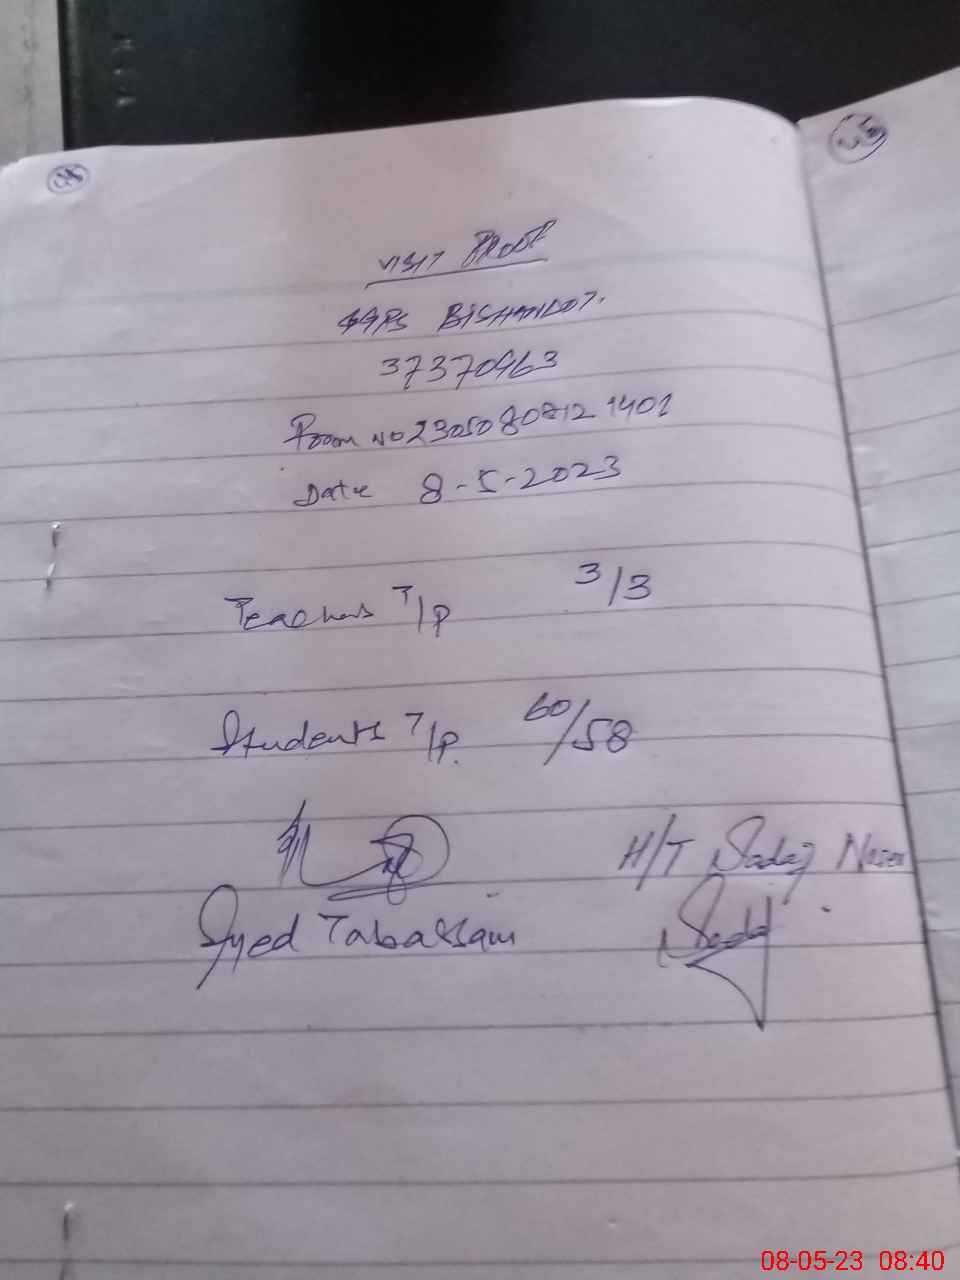 VISIT PROOF
GGPS BISHANDOT.
37370463
Proom NO 230508087121401
Date 8-5-2023
Teachers T/P 3/3
Students T/P. 60/58
H/T Sadaf
Syed Tabassam
08-05-23 08:40